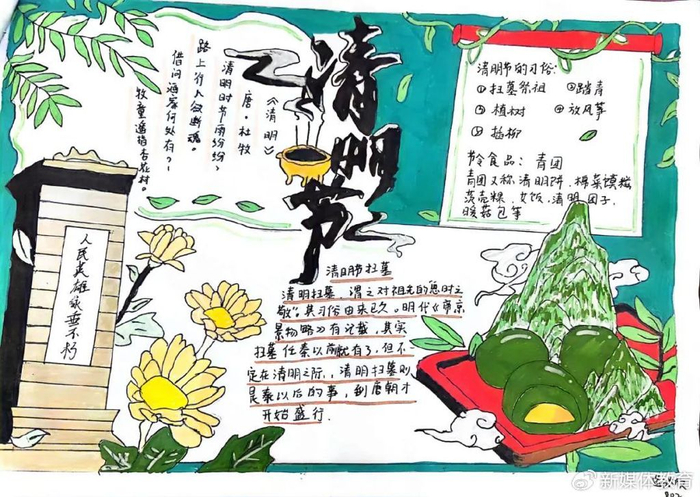 清明节
《清明》
唐·杜牧
清明时节雨纷纷，
路上行人欲断魂。
借问酒家何处有？
牧童遥指杏花村。
清明节的习俗：
①扫墓祭祖
②踏青
③植树
④放风筝
⑤插柳
节令食品：青团
青团又称清明饼、棉菜馍糍、
茨壳粿、女饭、清明团子、
暖菇包等
人民英雄永垂不朽
清明节扫墓
清明扫墓，谓之对祖先的"思时之
敬"。其习俗由来已久。明代《帝京
景物略》有记载，其实
扫墓在秦以前就有了，但不
定在清明之际，清明扫墓则
是秦以后的事，到唐朝才
开始盛行。
新媒体教育